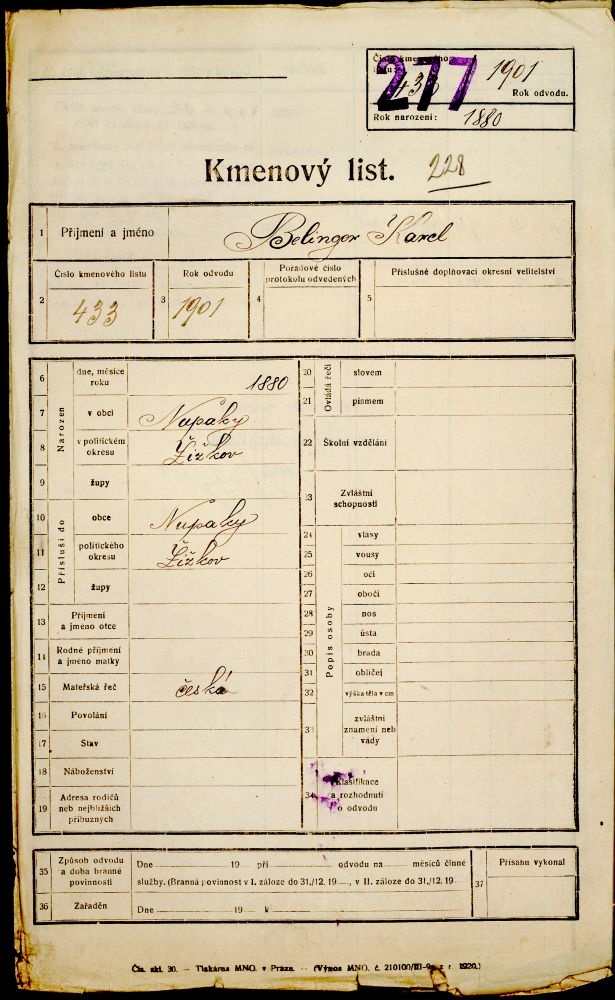 Číslo kmenového
listu:
433
277
1901
Rok odvodu.
Rok narození: 1880
Kmenový list. 228
1 Příjmení a jméno Belinger Karel
2 Číslo kmenového listu 433
3 Rok odvodu 1901
4 Pořadové číslo
protokolu odvedených
5 Příslušné doplňovací okresní velitelství
Narozen
6 dne, měsíce
roku 1880
7 v obci Nupaky
8 v politickém
okresu Žižkov
9 župy
Přísluší do
10 obce Nupaky
11 politického
okresu Žižkov
12 župy
13 Příjmení
a jméno otce
14 Rodné příjmení
a jméno matky
15 Mateřská řeč česká
16 Povolání
17 Stav
18 Náboženství
19 Adresa rodičů
neb nejbližších
příbuzných
Ovládá řeči
20 slovem
21 písmem
22 Školní vzdělání
23 Zvláštní
schopnosti
Popis osoby
24 vlasy
25 vousy
26 oči
27 obočí
28 nos
29 ústa
30 brada
31 obličej
32 výška těla v cm
33 zvláštní
znamení neb
vády
34 Klasifikace
a rozhodnutí
o odvodu
35 Způsob odvodu
a doba branné
povinnosti
Dne 19 při odvodu na měsíců činné
služby. (Branná povinnost v I. záloze do 31./12. 19 , v II. záloze do 31./12. 19
36 Zařaděn
Dne 19 k
37 Přísahu vykonal
Čís. skl. 30. — Tiskárna MNO. v Praze. — (Výnos MNO. č. 210100/III-9 z r. 1920.)